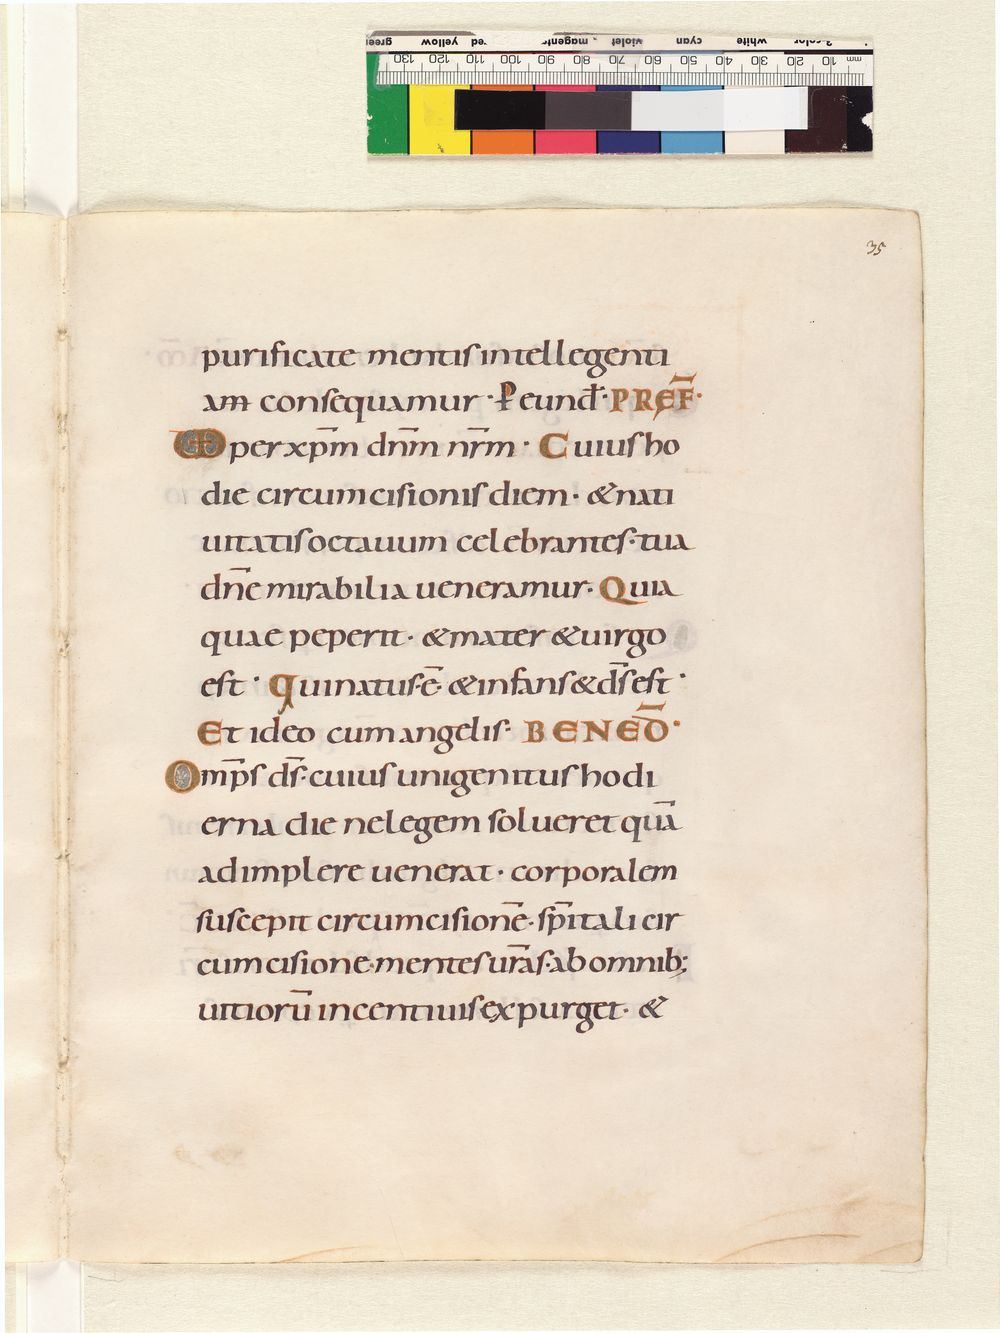 green yellow red magenta violet cyan white 3-color
130 120 110 100 90 80 70 60 50 40 30 20 10 mm
35
purificate mentis intellegenti
am consequamur · P eund̄ · PREF̄ ·
UD per xp̄m dn̄m nr̄m · Cuius ho
die circumcisionis diem · & nati
uitatis octauum celebrantes · tua
dn̄e mirabilia ueneramur · Quia
quae peperit · & mater & uirgo
est · Qui natus · ē · & infans & d̄s est ·
Et ideo cum angelis · BENED̄ ·
Omp̄s d̄s · cuius unigenitus hodi
erna die ne legem solueret quā
adimplere uenerat · corporalem
suscepit circumcisionē · sp̄itali cir
cumcisione · mentes ur̄as · ab omnib;
uitiorū incentiuis expurget · &